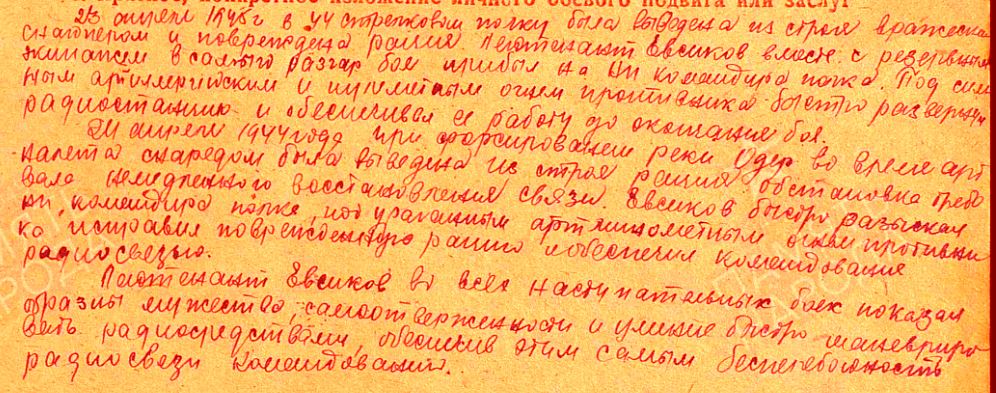 Краткое, конкретное изложение личного боевого подвига или заслуг
23 апреля 1945 г в 44 стрелковом полку была выведена из строя вражеским
снайпером и повреждена рация. Лейтенант Евсиков вместе с резервным
экипажем в самый разгар боя прибыл на НП командира полка. Под силь
ным артиллерийским и пулеметным огнем противника быстро развернул
радиостанцию и обеспечивал её работу до окончания боя.
24 апреля 1944 года при форсировании реки Одер во время арт
налета снарядом была выведена из строя рация обстановка требо
вала немедленного восстановления связи. Евсиков быстро разыскал
НП, командира полка, под ураганным артминометным огнем противни
ка исправил поврежденную рацию и обеспечил командование
радиосвязью.
Лейтенант Евсиков во всех наступательных боях показал
образцы мужества, самоотверженности и умение быстро маневриро
вать радиосредствами, обеспечив этим самым бесперебойность
радиосвязи командованию.